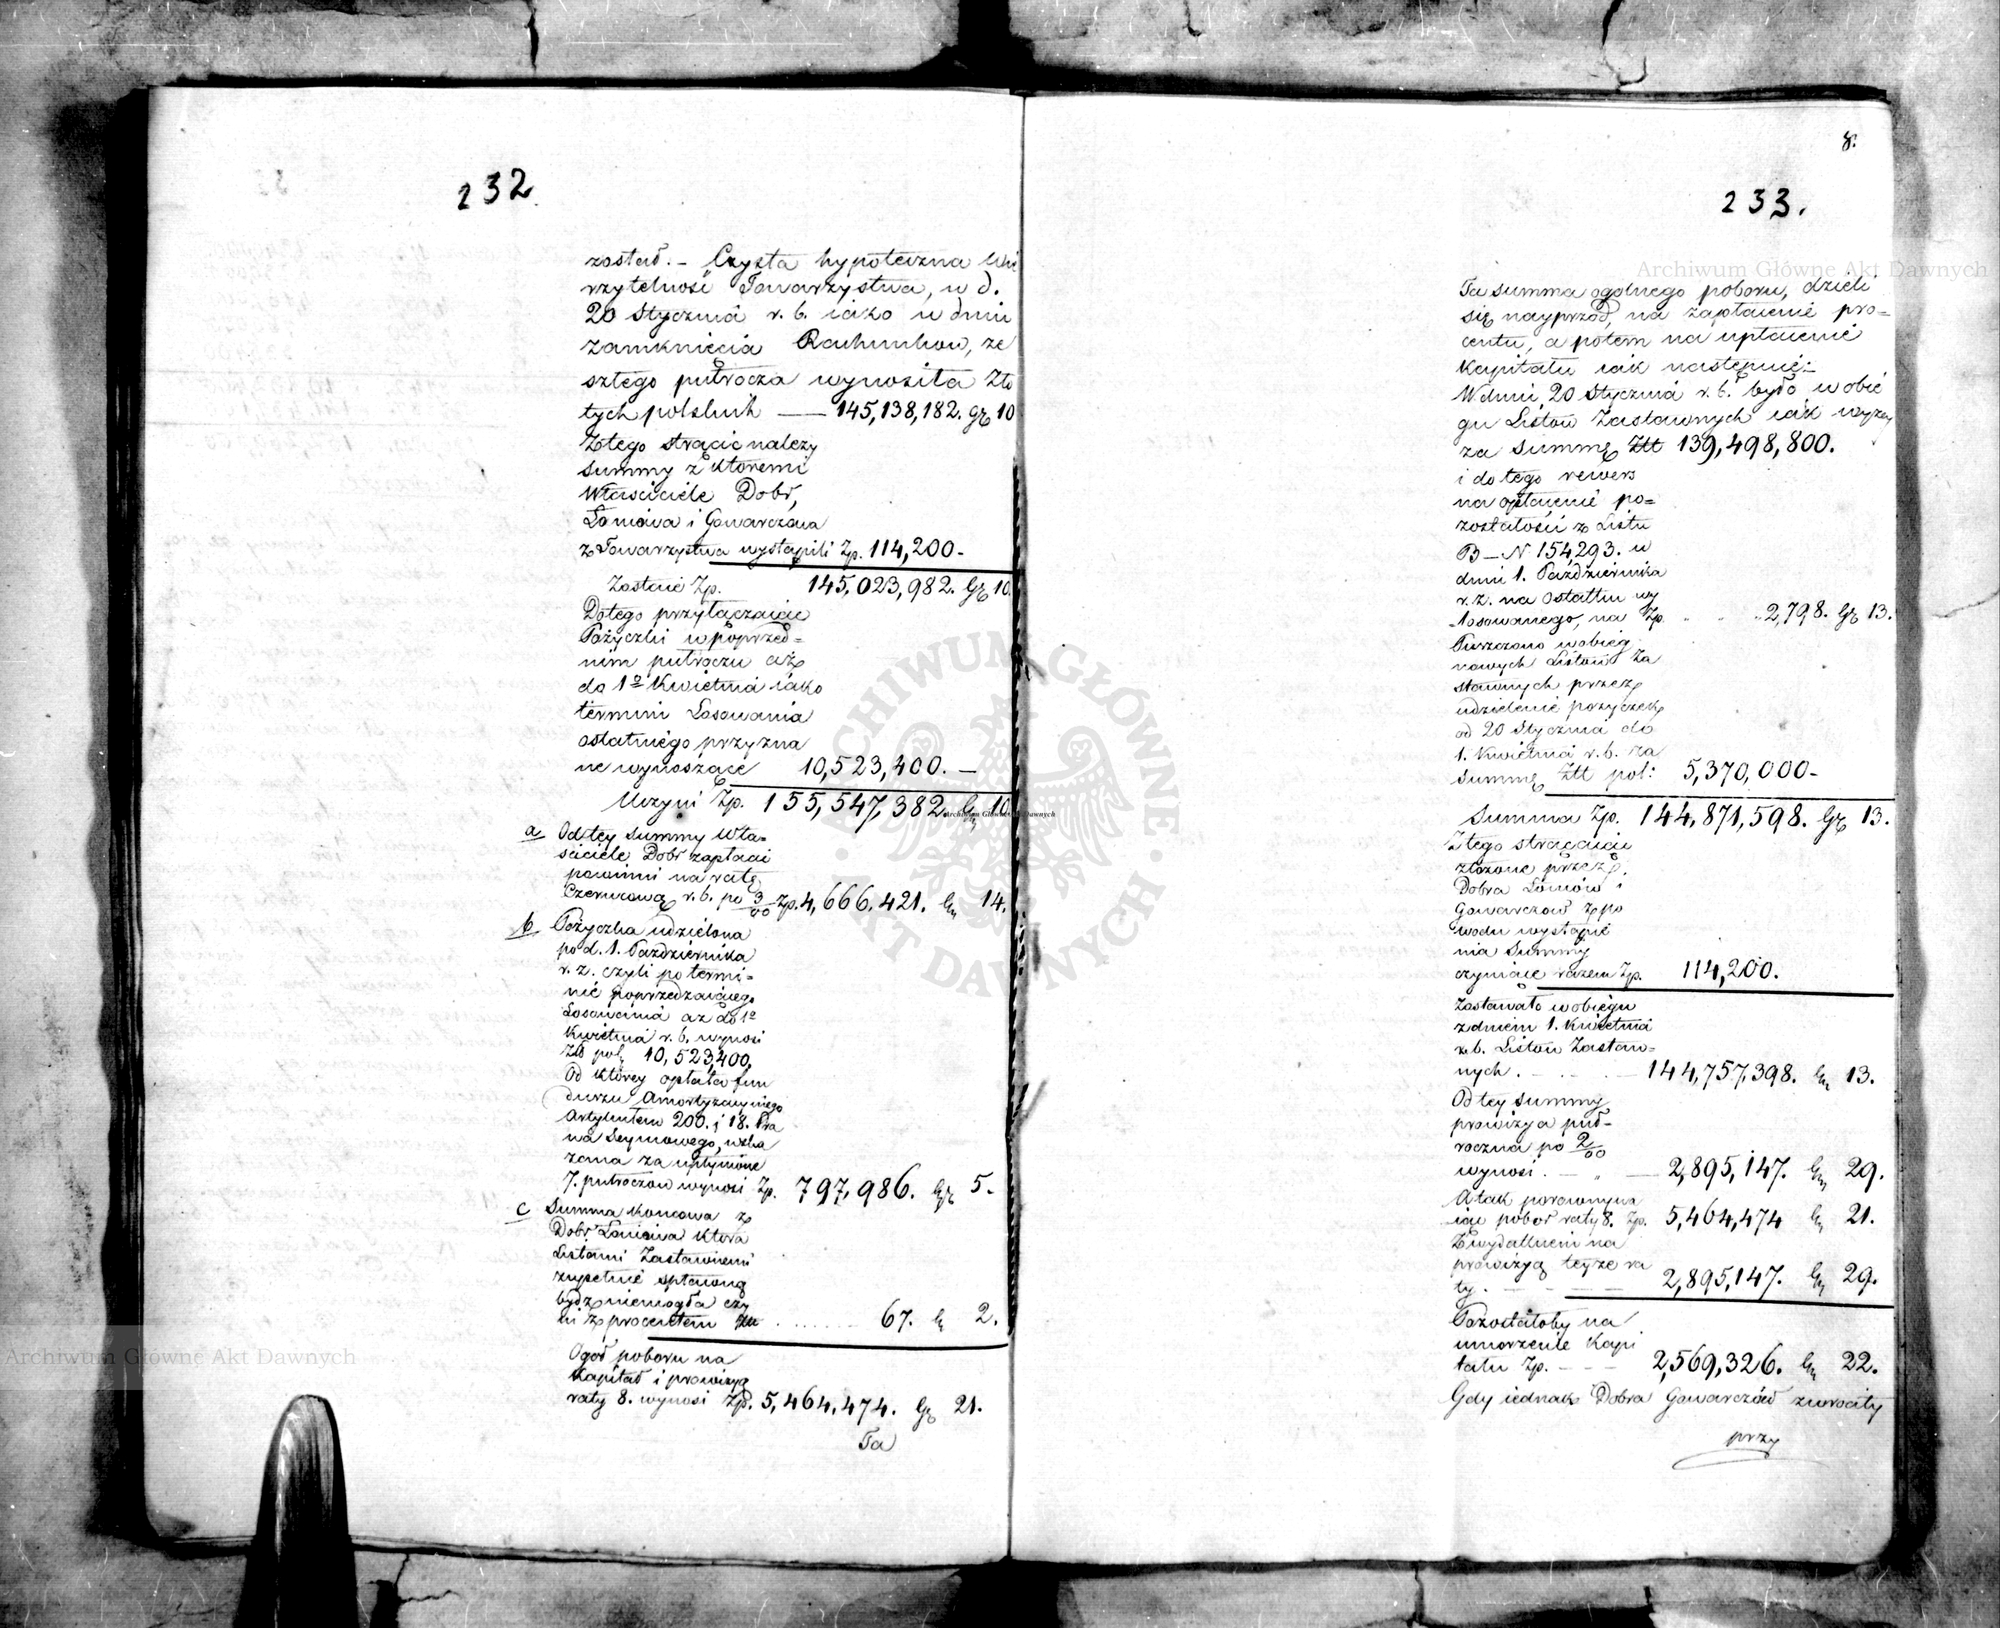 232
zostać. – Czysta hypoteczna Wie
rzytelność Towarzystwa, w d.
20 Stycznia r. b. iako w dniu
zamknięcia Rachunków, ze
szłego półrocza wynosiła Zło
tych polskich —— 145,138,182. gr 10
Z tego strącić należy
summy z któremi
Właściciele Dobr,
Łoniowa i Gowarczowa
z Towarzystwa wystąpili Zp. 114,200.–
Zostaie Zp. 145,023,982. Gr 10.
Do tego przyłączaiąc
Pożyczki w poprzed=
nim półroczu aż
do 1º Kwietnia iako
terminu Losowania
ostatniego przyzna
ne wynoszące 10,523,400. —
Uczyni Zp. 155,547,382. Gr 10
a Od tey summy Wła=
ściciele Dobr zapłacić
powinni na ratę
Czerwcową r. b. po 3/00 Zp. 4,666,421. Gr 14.
b Pożyczka udzielona
po d. 1. Października
r. z. czyli po termi=
nie poprzedzaiącego
Losowania aż do 1º
Kwietnia r. b. wynosi
Złt pol 10,523,400.
Od którey opłata fun
duszu Amortyzacyinego
Artykułem 200. i 18. Pra
wa Seymowego, wska
zana za upłynione
7. półroczow wynosi Zp. 797,986. Gr 5.
c Summa końcowa z
Dobr Łoniowa która
Listami Zastawnemi
zupełnie spłaconą
bydź niemogła czy
ni z procentem 67. Gr 2.
Ogół poboru na
Kapitał i prowizyą
raty 8. wynosi Zp. 5,464,474. Gr 21.
Ta
8.
233.
Ta summa ogólnego poboru, dzieli
się nayprzód, na zapłacenie pro=
centu, a potem na upłacenie
Kapitału iak następuie:–
W dniu 20 Stycznia r. b. było w obie
gu Listów Zastawnych iak wyżey
za summę Złt 139,498,800.
i do tego rewers
na opłacenie po=
zostałości z Listu
B — N 154293. w
dniu 1. Października
r. z. na ostatku wy
losowanego, na Zp. 2,798. Gr 13.
Puszczono w obieg
nowych Listów Za
stawnych przez
udzielenie pożyczek
od 20 Stycznia do
1. Kwietnia r. b. za
Summę Złt pol: 5,370,000–
Summa Zp. 144,871,598. Gr 13.
Z tego strącaiąc
złożone przez
Dobra Łoniów i
Gowarczow z po
wodu wystąpie
nia Summy
czyniące razem Zp. 114,200.
Zostawało w obiegu
z dniem 1. Kwietnia
r. b. Listow Zastaw=
nych 144,757,398. Gr 13.
Od tey summy
prowizya pół=
roczna po 2/00
wynosi 2,895,147. Gr 29.
A tak porownywa
iąc pobor raty 8. Zp. 5,464,474 Gr 21.
Z wydatkiem na
prowizyą teyże ra
ty 2,895,147. Gr 29.
Pozostałoby na
umorzenie Kapi
tału Zp. 2,569,326. Gr 22.
Gdy iednak Dobra Gowarczów zwrociły
przy
Archiwum Główne Akt Dawnych
Archiwum Główne Akt Dawnych
Archiwum Główne Akt Dawnych
ARCHIWUM GŁÓWNE · AKT DAWNYCH ·